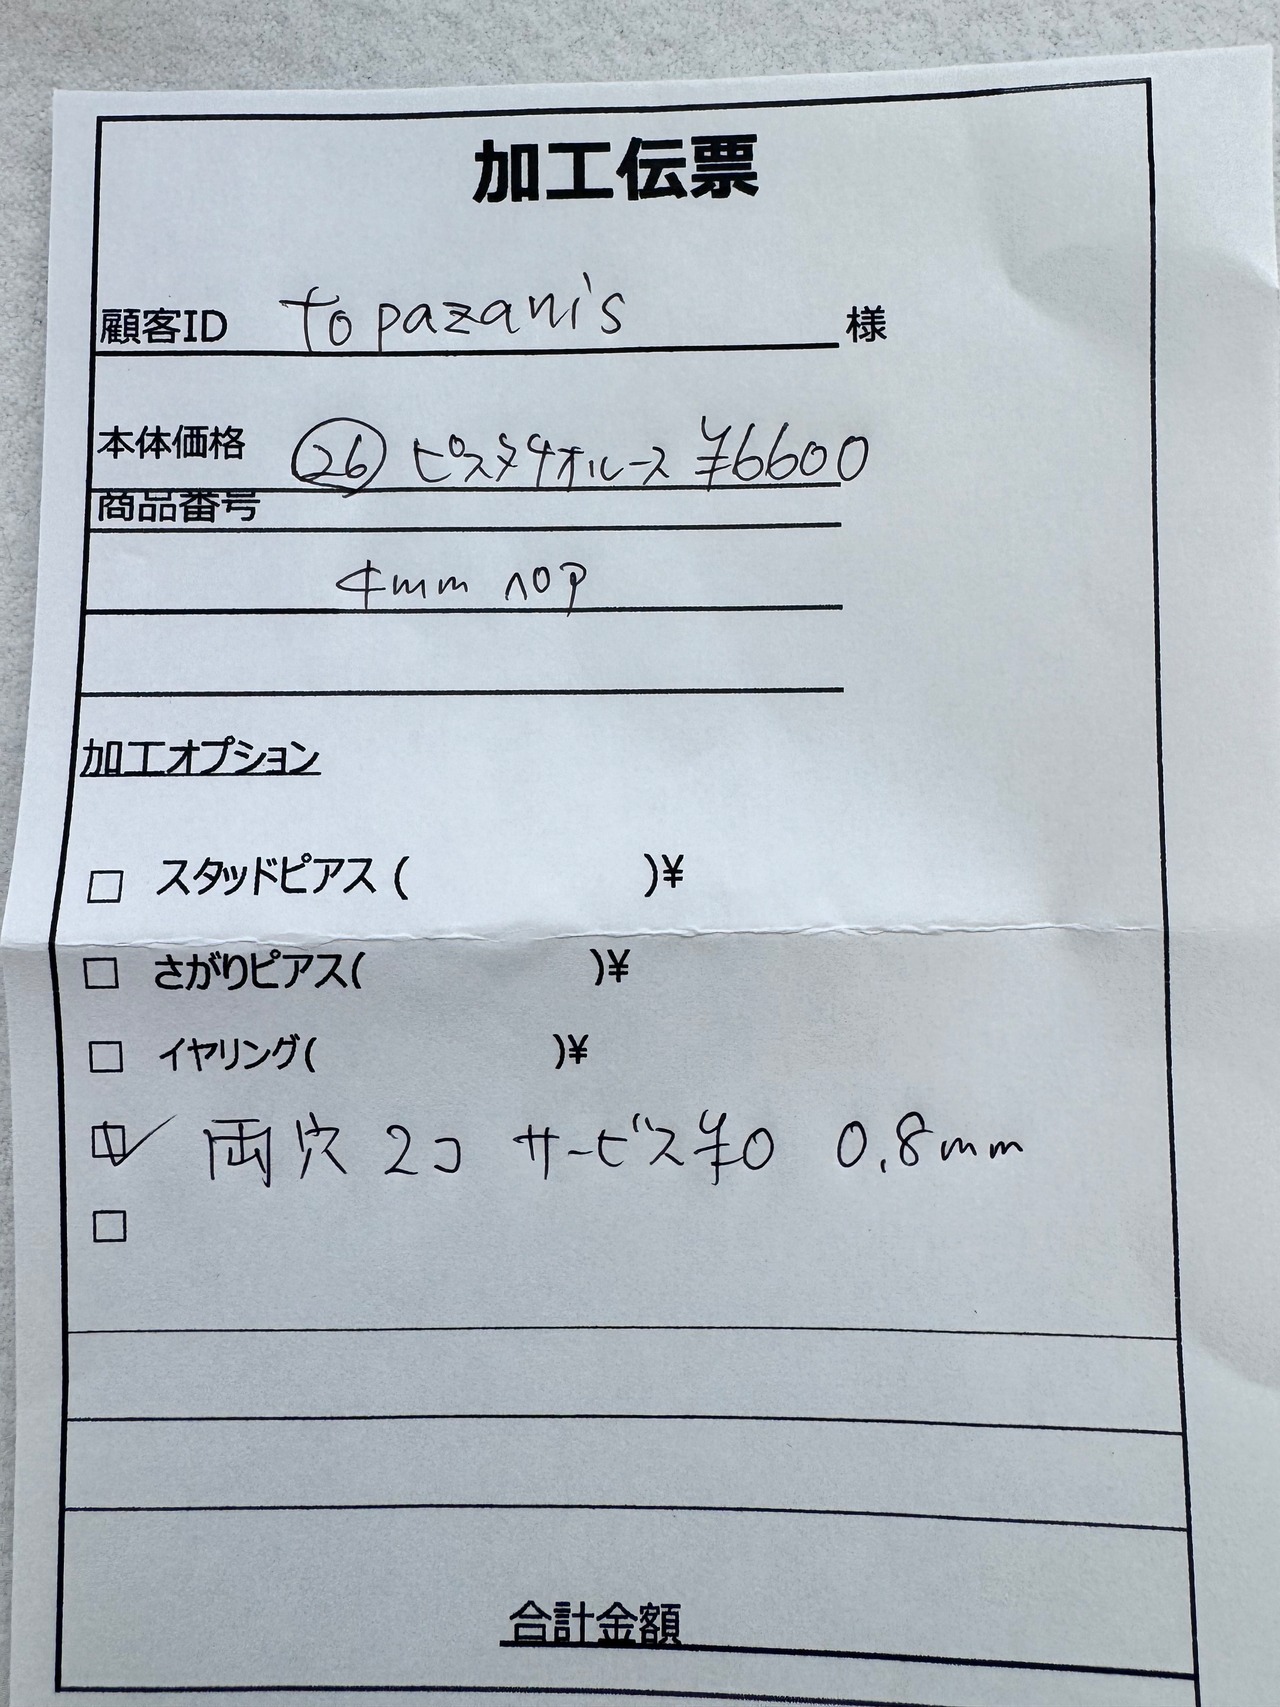 加工伝票
顧客ID topazanis 様
本体価格 26 ピスタチオルース ¥6600
商品番号
4mm 10P
加工オプション
□ スタッドピアス ( )¥
□ さがりピアス( )¥
□ イヤリング( )¥
☑ 両穴 2コ サービス¥0 0.8mm
□
合計金額